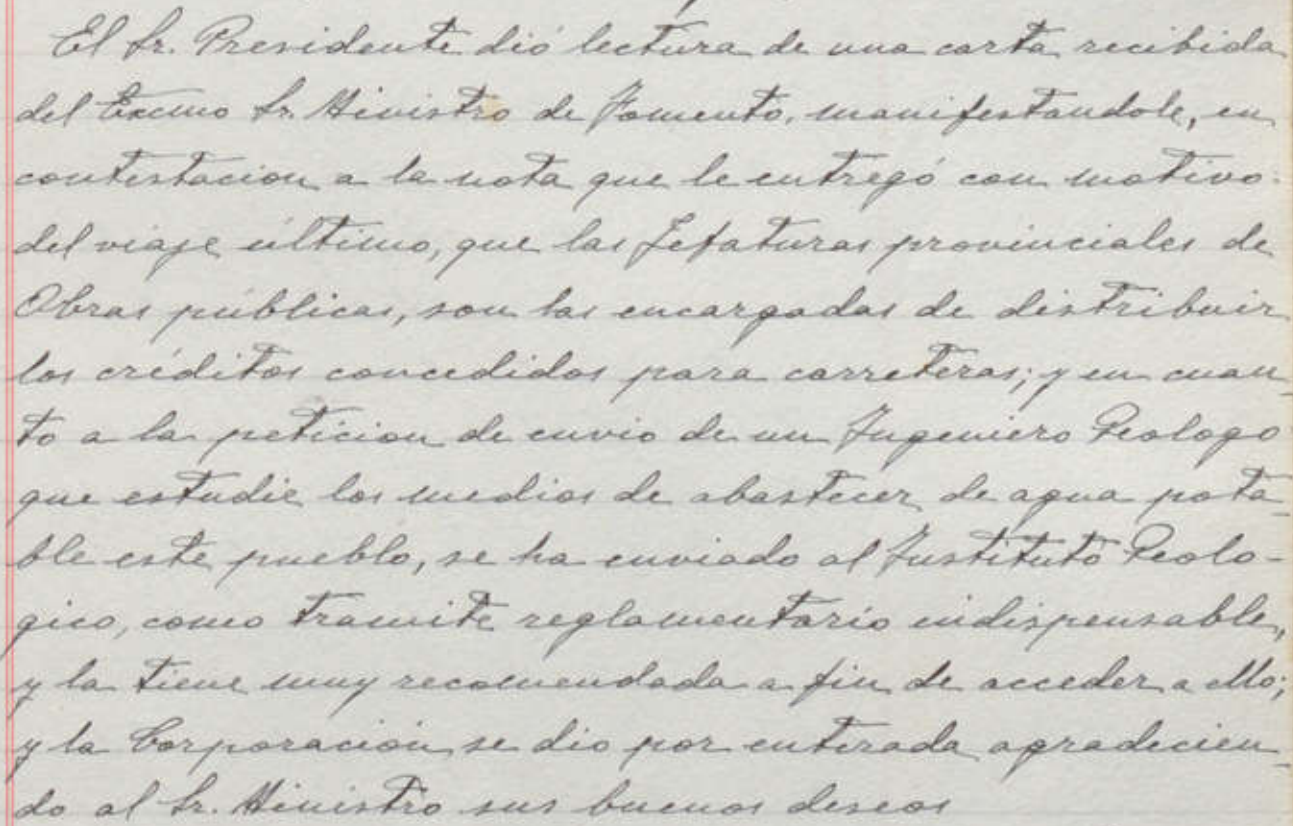 El Sr. Presidente dió lectura de una carta recibida
del Excmo Sr. Ministro de Fomento, manifestandole, en
contestacion a la nota que le entregó con motivo
del viaje último, que las Jefaturas provinciales de
Obras públicas, son las encargadas de distribuir
los créditos concedidos para carreteras; y en cuan
to a la peticion de envio de un Ingeniero Geologo
que estudie los medios de abastecer de agua pota_
ble este pueblo, se ha enviado al Instituto Geolo-
gico, como tramite reglamentario indispensable,
y la tiene muy recomendada a fin de acceder a ello;
y la Corporación se dio por enterada agradecien_
do al Sr. Ministro sus buenos deseos